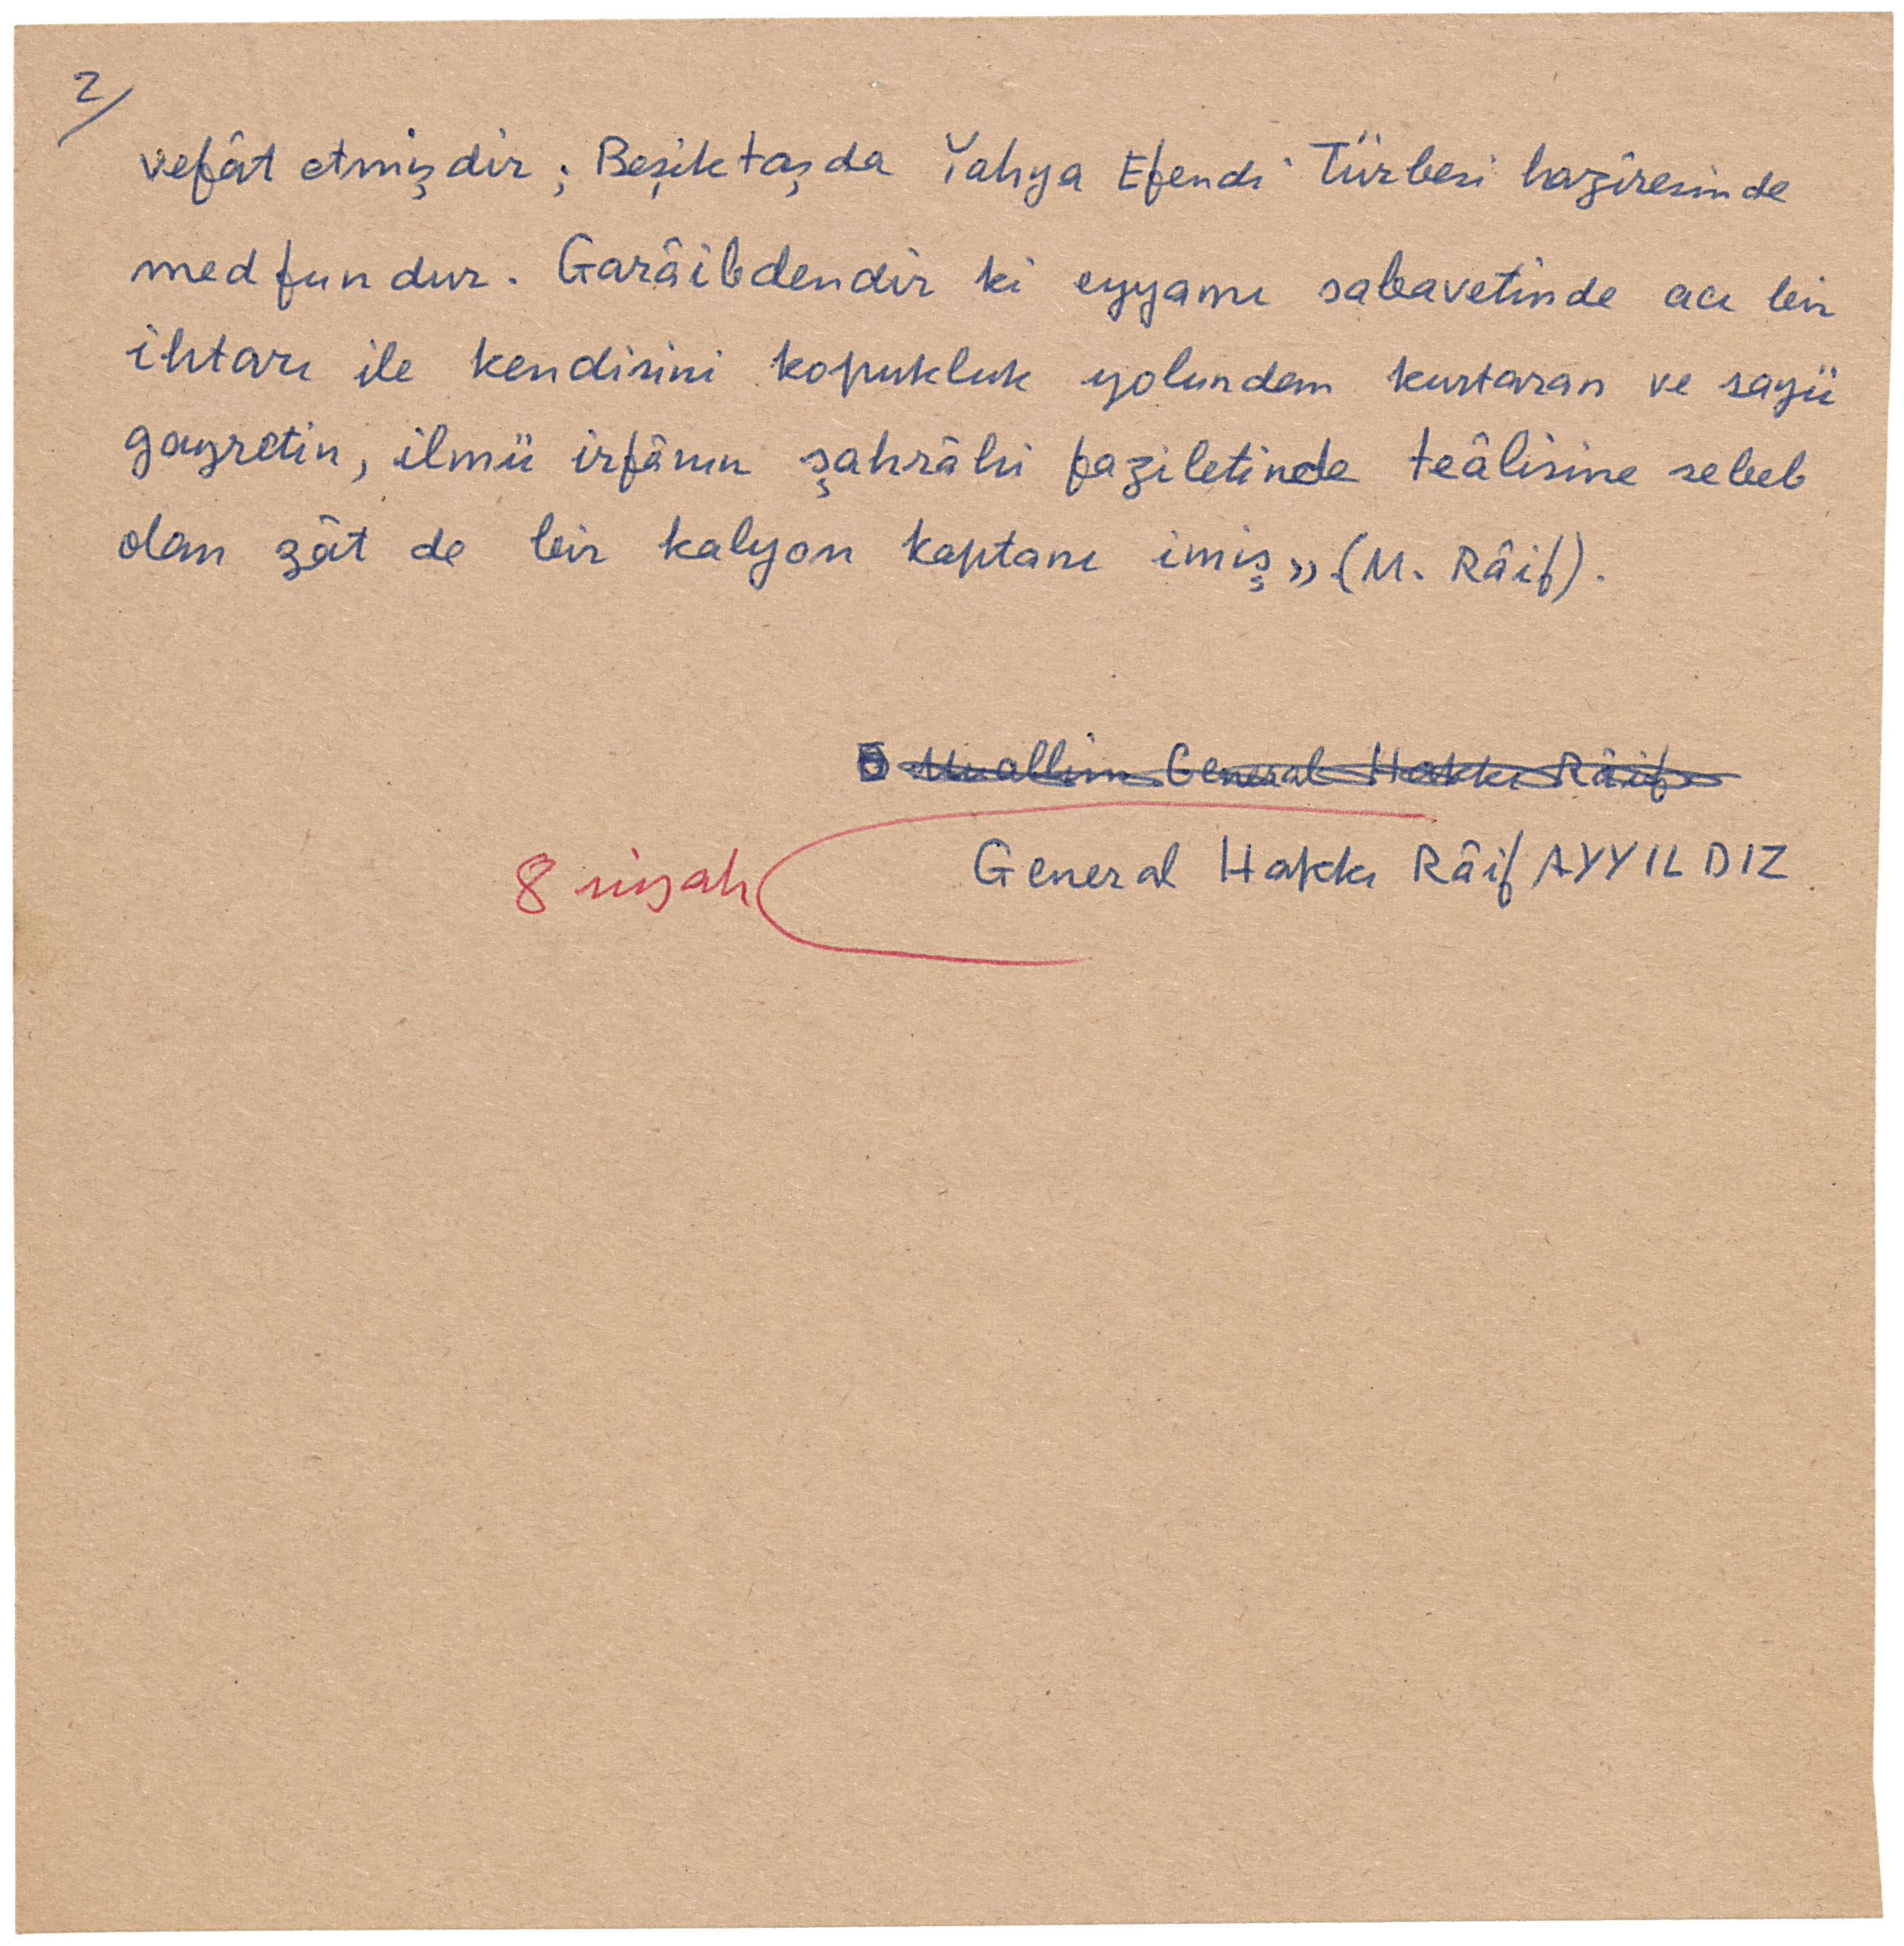 2/
vefât etmişdir ; Beşiktaşda Yahya Efendi Türbesi hazîresinde
medfundur. Garâibdendir ki eyyamı sabavetinde acı bir
ihtarı ile kendisini kopukluk yolundan kurtaran ve sayü
gayretin, ilmü irfânın şahrâhi faziletinde teâlisine sebeb
olan zât de bir kalyon kaptanı imiş» (M. Râif).
Muallim General Hakkı Râif
General Hakkı Râif AYYILDIZ
8 siyah